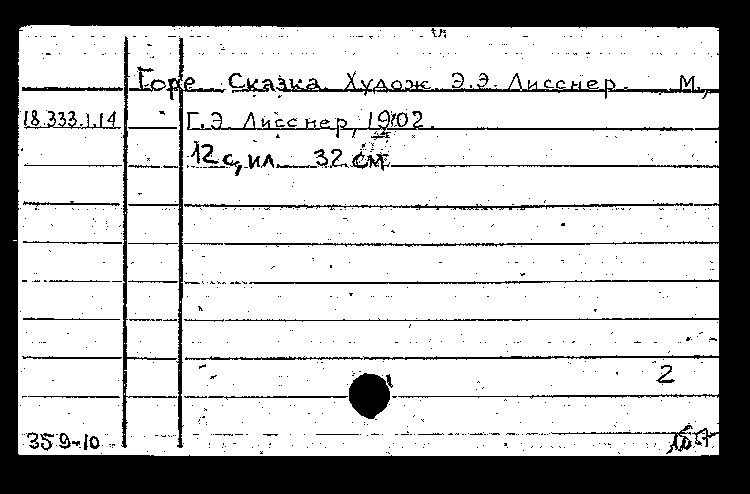 Горе. Сказка. Худож. Э.Э. Лисснер. М.,
18.333.1.14 Г.Э. Лисснер, 1902.
12 с, ил. 32 см
2
359-10